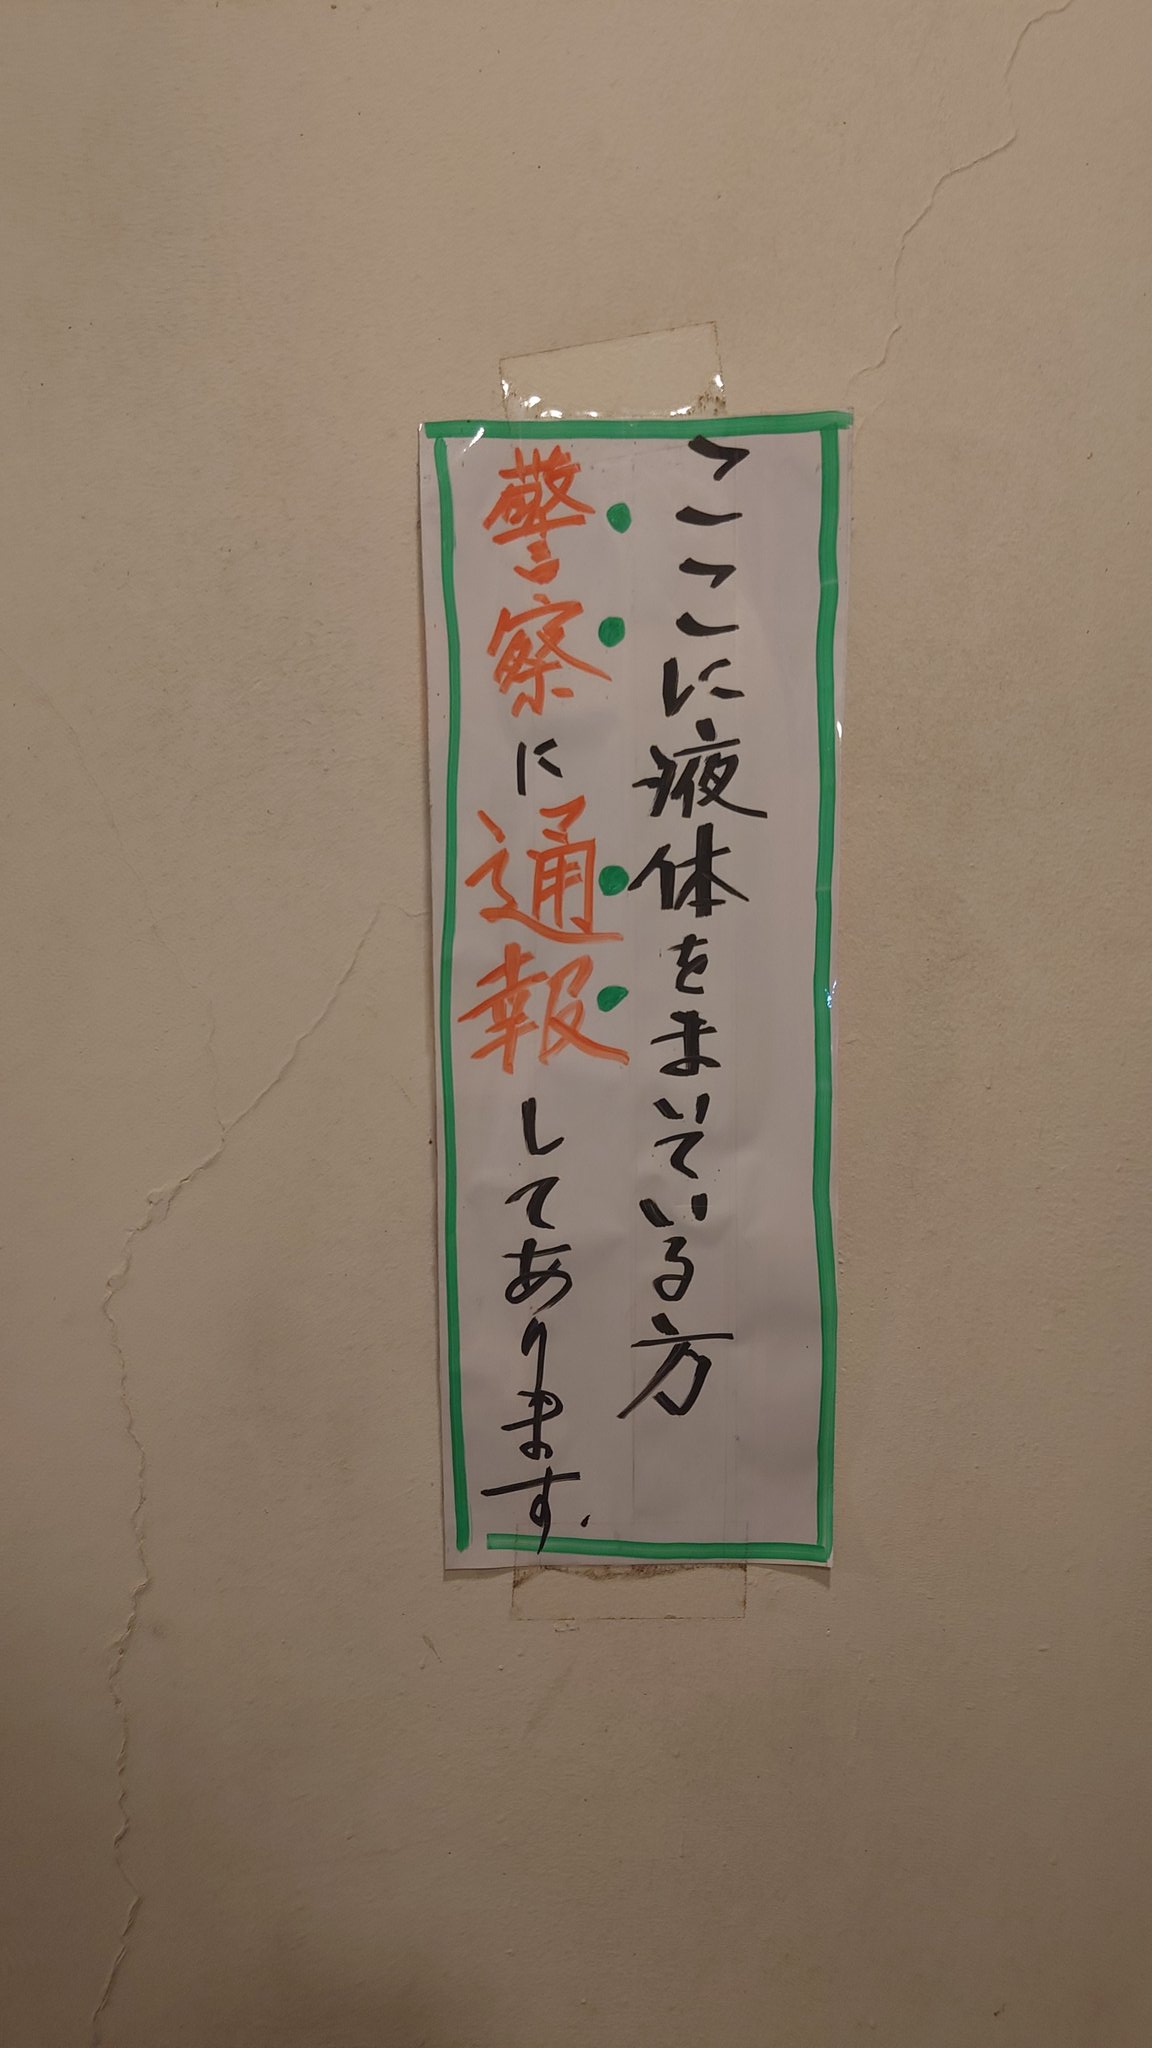 ここに液体をまいている方
警察に通報してあります.